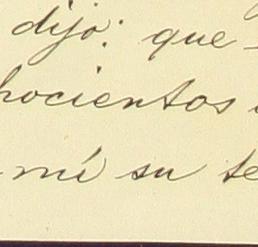 dijo: que
hocientos
mí su te